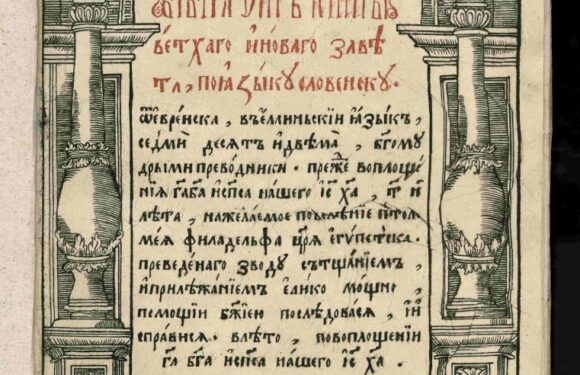 Библїа сирѣчь книгы
ветхаго и новаго завѣ
та, по ꙗзыкꙋ словенскꙋ.
Ѿ еврейска, въ еллиньскїи ꙗзыкъ,
седмїю десѧтъ и двѣма, бг҃омꙋ
дрыми преводники. преж҃е воплоще
нїѧ га҃ ба҃ и сп҃са нашего іс҃ ха҃, т҃ и
лѣта, на желаемое повелѣнїе птоло
меѧ филаделѳа цр҃ѧ египетска.
преведенаго зводꙋ, съ тщанїемъ,
и прилѣжанїемъ елико мощно,
помощїи бж҃їею послѣдовасѧ, и и
справисѧ. в лѣто, по воплощенїи
га҃ ба҃ и сп҃са нашего іс҃ ха҃.